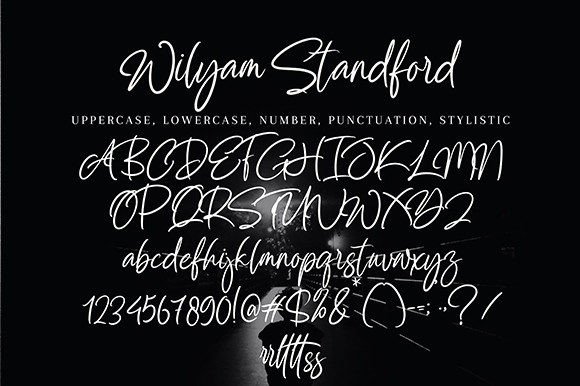 Wilyam Standford
UPPERCASE, LOWERCASE, NUMBER, PUNCTUATION, STYLISTIC
ABCDEFGHIJKLMN
OPQRSTUVWXYZ
abcdefhijklmnopqrstuvwxyz
1234567890!@#$%&*()-=;.,?/
rrltttss